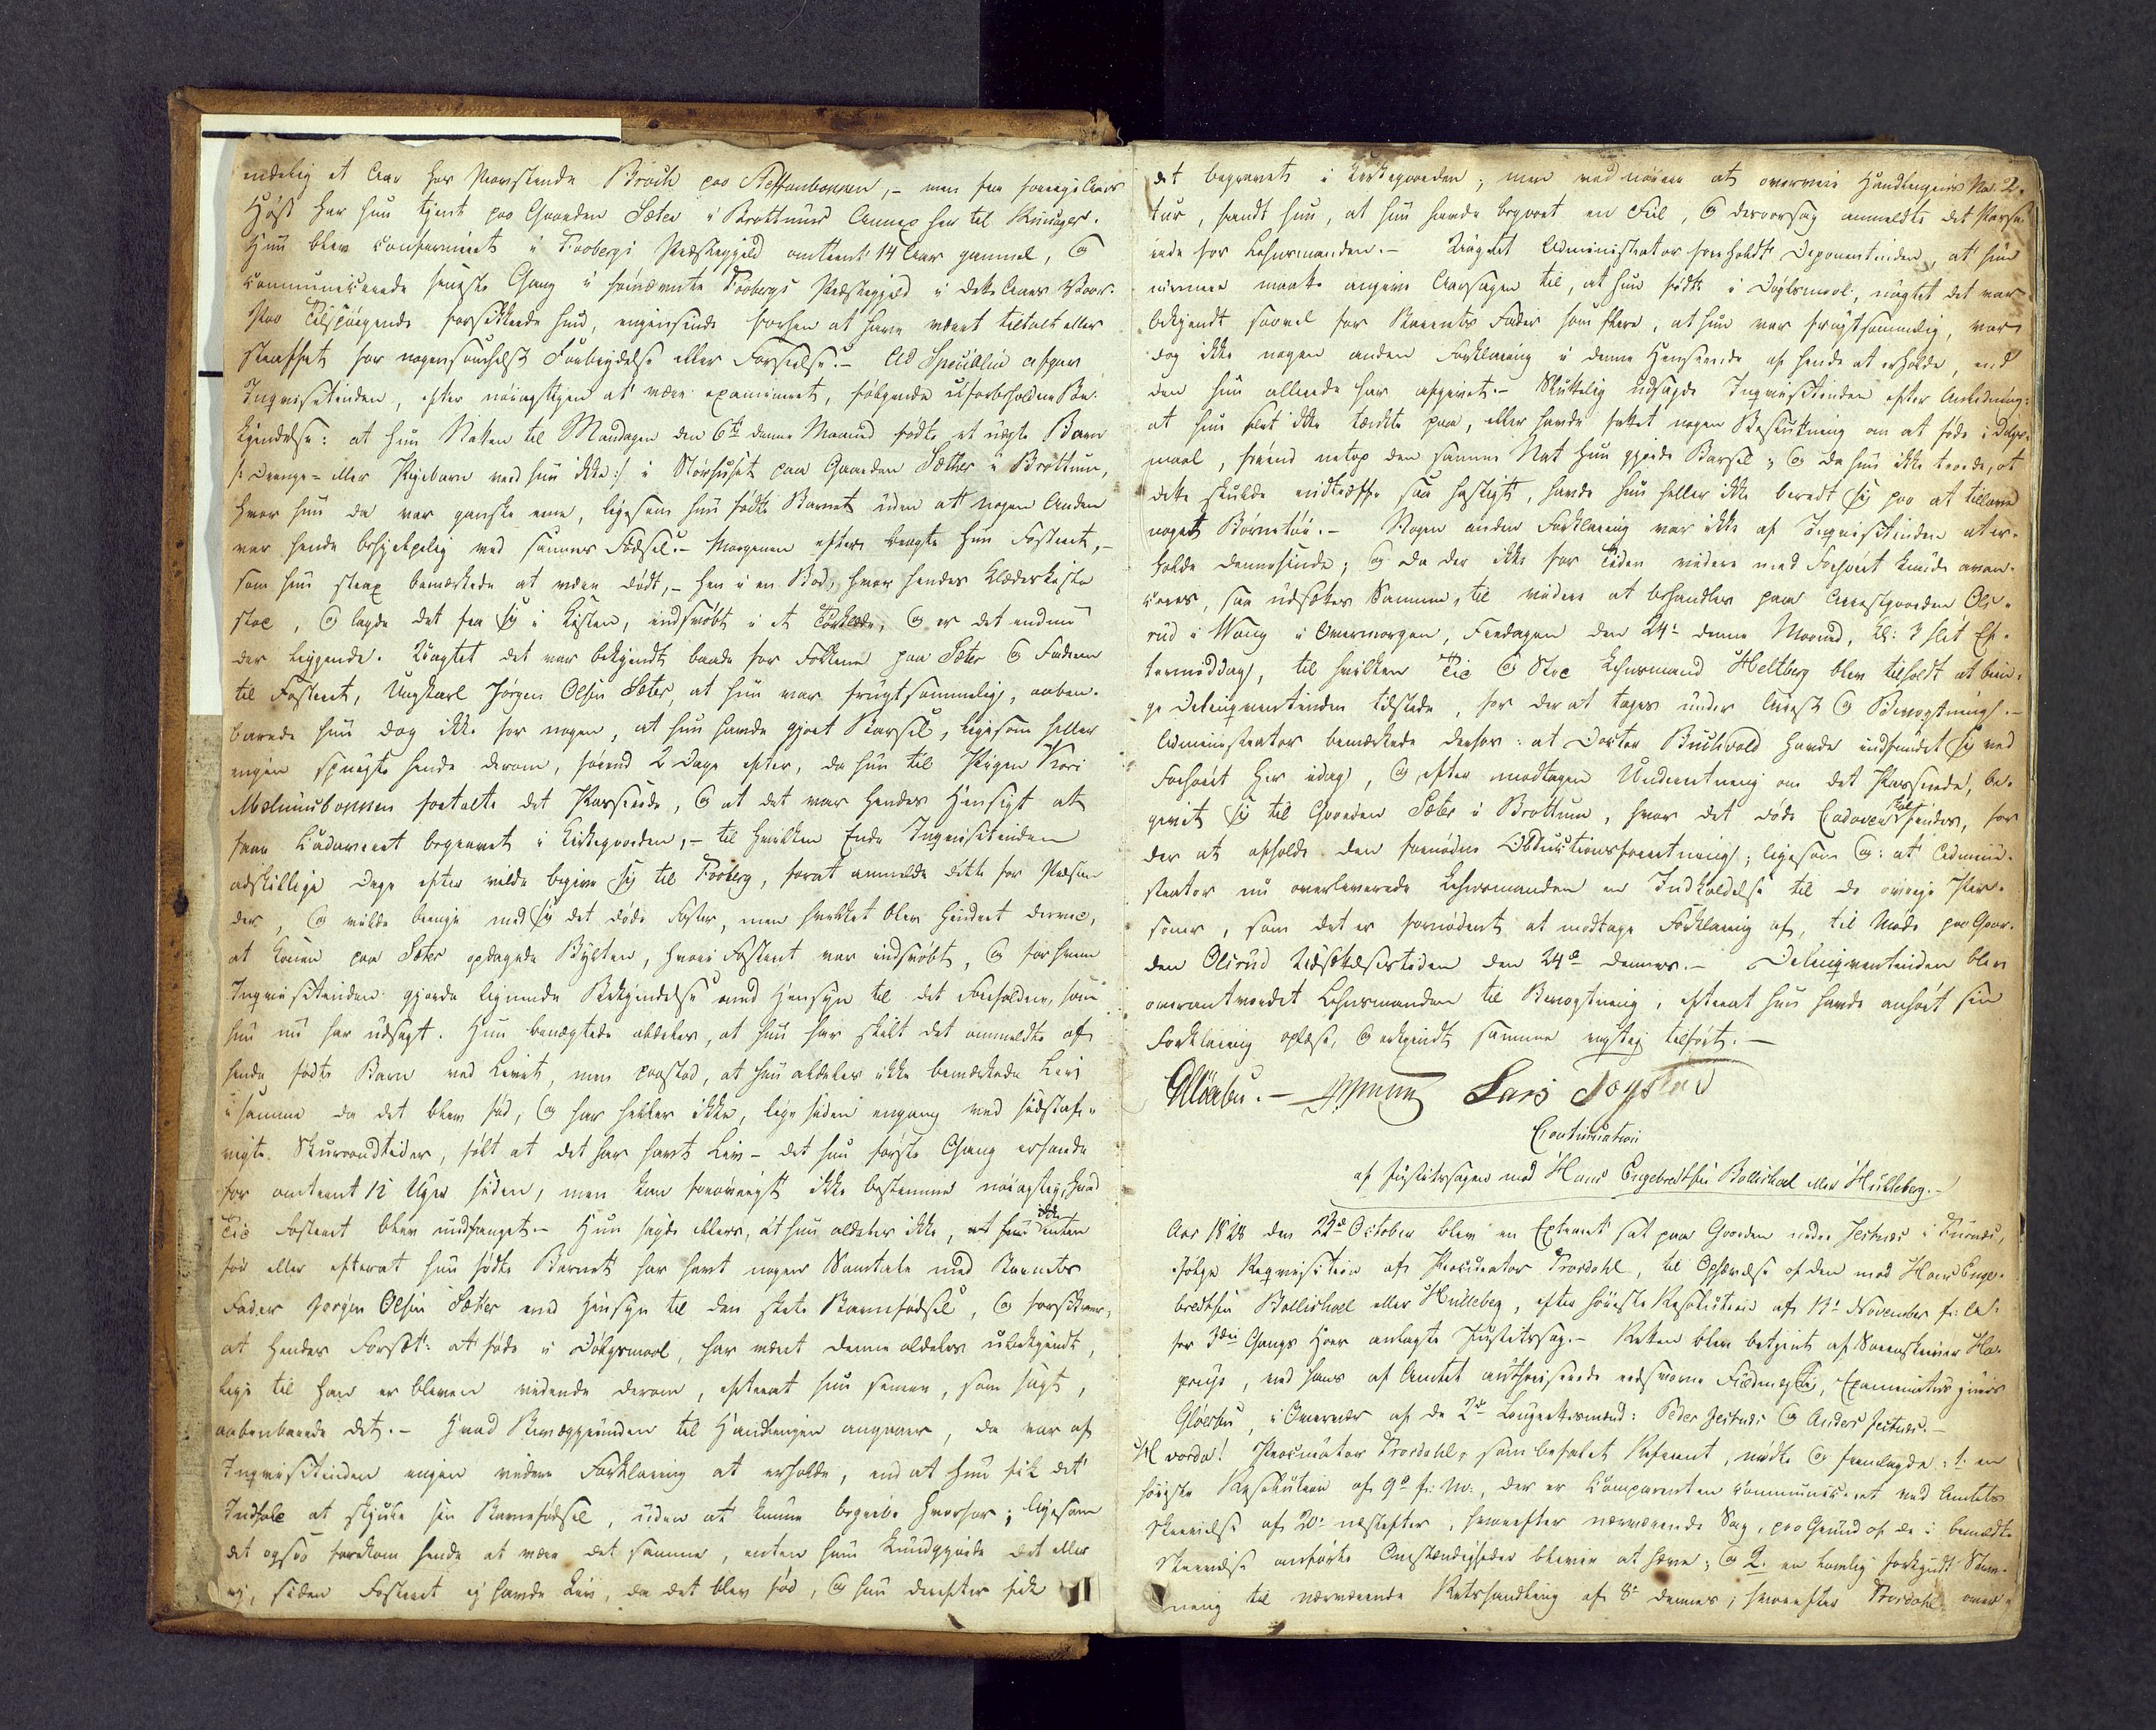 nedelig et Aar hos Provstinde Broch paa Steffenbonnen, – men fra forrige Aars
Høst har hun tjent paa Gaarden Sæter i Brøttums Annex her til Ringsager.
Hun blev confirmeret i Faabergs Præstegjeld omtrent 14 Aar gammel, og
communicerede seneste Gang i føromrørte Faabergs Præstegjeld i dette Aars Vaar.
Paa Tilspørgende forsikkrede hun, ingensinde forhen at have været tiltalt eller
straffet for nogensomhelst Forbrydelse eller Forseelse. – Ad Speciem afgav
Inqvisitinden, efter nøiagtigen at være examineret, følgende uforbeholdne Be-
kjendelse: at hun Natten til Mandagen den 6te denne Maaned fødte et uægte Barn
/: Drenge- eller Pigebarn veed hun ikke :/ i Storhuset paa Gaarden Sæther i Brøttum,
hvor hun da var ganske ene, ligesom hun fødte Barnet uden at nogen Anden
var hende behjelpelig ved samme Fødsel. – Morgenen efter bragte hun Fosteret, –
som hun strax bemærkede at være dødt, – hen i en Bod, hvor hendes Klædeskiste
stod, og lagde det fra sig i Kisten, indsvøbt i et Forklæde, og er det endnu
der liggende. Uagtet det var bekjendt baade for Folkene paa Sæter og Faderen
til Fosteret, Ungkarl Jørgen Olsen Sæter, at hun var frugtsommelig, aaben-
barede hun dog ikke for nogen, at hun havde gjort Barsel, ligesom heller
ingen spurgte hende derom, førend 2 Dage efter, da hun til Pigen Kari
Mælumsbonnen fortalte det Passerede, og at det var hendes Hensigt at
faae Cadaveret begravet i Kirkegaarden, – til hvilken Ende Inqvisitinden
adskillige Dage efter vilde begive sig til Faaberg, forat anmelde dette for Præsten
der, og vilde bringe med sig det døde Foster, men hvilket blev hindret derved,
at Konen paa Sæter opdagede Bylten, hvori Fosteret var indsvøbt, og for hvem
Inqvisitinden gjorde lignende Bekjendelse med Hensyn til det Forefaldne, som
hun nu har udsagt. Hun benægtede aldeles, at hun har skilt det ommeldte af
hende fødte Barn ved Livet, men paastod, at hun aldeles ikke bemærkede Liv
i samme da det blev fød, og har heller ikke, lige siden engang ved sidstaf-
vigte Skuraandtider, følt at det har havt Liv – det hun første Gang erfarede
for omtrent 12 Uger siden, men kan forøvrigt ikke bestemme nøiagtig, hvad
Tid Fosteret blev undfanget. – Hun sagde ellers, at hun aldeles ikke, at hun ikke enten
før eller efterat hun fødte Barnet har havt nogen Samtale med Barnets
Fader Jørgen Olsen Sæter med Hensyn til den skete Barnefødsel, og forsikkrer,
at hendes Forsæt: at føde i Dølgsmaal, har været denne aldeles ubekjendt,
lige til han er bleven vidende derom, efterat hun senere, som sagt,
aabenbarede det. – Hvad Bevæggrunden til Handlingen angaaer, da var af
Inqvisitinden ingen videre Forklaring at erholde, end at hun fik det
Indfald at skjule sin Barnefødsel, uden at kunne begribe hvorfor; ligesom
det ogsaa forekom hende at være det samme, enten hun kundgjorde det eller
ej, siden Fosteret ej havde Liv, da det blev fød, og hun derefter fik
det begravet i Kirkegaarden; men ved nøiere at overveie Handlingens Na- 2.
tur, fandt hun, at hun havde begaaet en Feil, og derovrsag anmeldte det Passe-
rede for Lehnsmanden. – Uagtet Administrator foreholdt Deponentinden, at hun
nærmere maatte angive Aarsagen til, at hun fødte i Dølgsmaal, uagtet det var
bekjendt saavel for Barnets Fader som flere, at hun var frugtsommelig, var
dog ikke nogen anden Forklaring i denne Henseende af hende at erholde, end
den hun allerede har afgivet. – Sluttelig udsagde Inqvisitinden efter Anledning:
at hun slet ikke tænkte paa, eller havde fattet nogen Beslutning om at føde i Dølgs-
maal, førend netop den samme Nat hun gjorde Barsel; og da hun ikke troede, at
dette skulde indtræffe saa hastigt, havde hun heller ikke beredt sig paa at tillave
noget Børnetøi. – Nogen anden Forklaring var ikke af Inqvisitinden at er-
holde dennesinde; og da der ikke for Tiden videre med Forhøret kunde avan-
ceres, saa udsættes Samme, til videre at behandles paa Arrestgaarden Ols-
rud i Vang i Overmorgen, Fredagen den 24de denne Maaned, Kl: 3 slet Ef-
termiddag, til hvilken Tid og Sted Lehnsmand Heltberg blev tilholdt at brin-
ge Delinqventinden tilstede, for der at tages under Arrest og Bevogtning. –
Administrator bemærkede derhos: at Doctor Buchvold havde indfundet sig ved
Forhøret her idag, og, efter modtagen Underretning om det Passerede, be-
givet sig til Gaarden Sæter i Brøttum, hvor det døde Cadaver skal findes, for
der at afholde den fornødne Obductionsforretning; ligesom og: at Admini-
strator nu overleverede Lehnsmanden en Indkaldelse til de øvrige Per-
soner, som det er fornødent at modtage Forklaring af, til Møde paa Gaar-
den Olsrud Udsættelsestiden den 24de dennes. – Delinqventinden blev
overantvordet Lehnsmanden til Bevogtning, efterat hun havde anhørt sin
Forklaring oplæse, og erkjendt samme rigtig tilført. –
Gløerbu. – Lars Joystad
Continuation
af Justitssagen mod Hans Engebretsen Bollishol eller Hulleberg. –
Aar 1828 den 22de October blev en Extraret sat paa Gaarden nedre Jestnæs i Furnæs,
ifølge Reqvisition af Procurator Trosdahl, til Ophævelse af den mod Hans Enge-
bretsen Bollishoel eller Hulleberg, efter høieste Resolution af 13de November f: A:
for 3die Gangs Hoer anlagte Justitssag. – Retten blev betjent af Sorenskriver Ha-
grup, ved hans af Amtet authoriserede edsvorne Fuldmægtig, Examinatus juris
Gløerbu, i Overvær af de 2de Laugrettesmænd: Peder Jestnæs og Anders Jestnæs. –
Hvorda! Procurator Trosdahl, som befalet Referent, mødte og fremlagde: 1. en
høieste Resolution af 9de f: M:, der er Comparenten communiceret ved Amtets
Skrivelse af 20de næstefter, hvorefter nærværende Sag, paa Grund af de i bemeldte
Skrivelse anførte Omstændigheder bliver at hæve; og 2. en lovlig forkyndt Stæv-
ning til nærværende Retshandling af 8de dennes; hvorefter Trosdahl